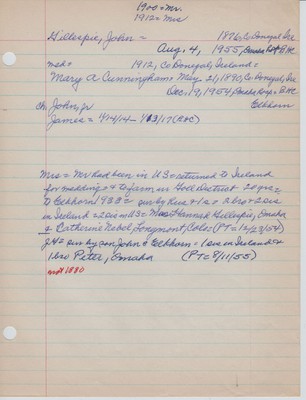 1900 = Mr.
1912 = Mrs
Gillespie, John = 1876, Co Donegal, Ire
Aug. 4, 1955, Omaha
md = 1912, Co Donegal, Ireland =
Mary A Cunningham = May 21, 1890, Co Donegal, Ire
Dec. 19, 1954, Omaha
Elkhorn
ch John, jr
James = 4/4/14 -
Mrs = Mr had been in US = returned to Ireland
for wedding & to farm in Goll District 20 yrs =
to Elkhorn 1932 = sur by hus & 1 s 2 bro & 2 sis
in Ireland & 2 sis in US = Miss Hannah Gillespie, Omaha
& Catherine Nebel, Longmont, Colo = (PT = 12/23/54)
sur by son John = Elkhorn = 1 sis in Ireland &
1 bro Peter, Omaha (PT = 8/11/55)
not 1880